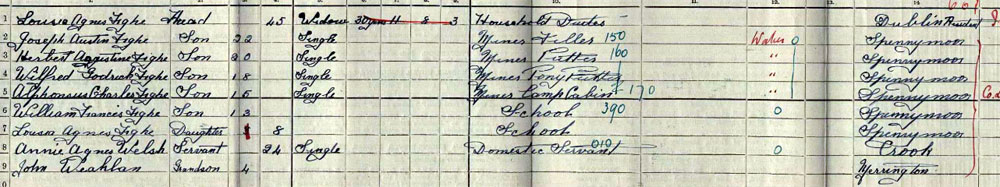 1 Louisa Agnes Tighe Head 45 Widow 30 yrs 11 8 3 Household Duties Dublin
2 Joseph Austin Tighe Son 22 Single Miner Filler 150 Worker 0 Spennymoor
3 Herbert Augustine Tighe Son 20 Single Miner Putter 160 " Spennymoor
4 Wilfred Godrich Tighe Son 18 Single Miner Pony Putter " Spennymoor
5 Alphonsus Charles Tighe Son 15 Single Miner Lamp Cabin 170 " Spennymoor
6 William Francis Tighe Son 13 School 390 0 Spennymoor
7 Louisa Agnes Tighe Daughter 8 School Spennymoor
8 Annie Agnes Welsh Servant 24 Single Domestic Servant 010 0 Crook
9 John Grandson 4